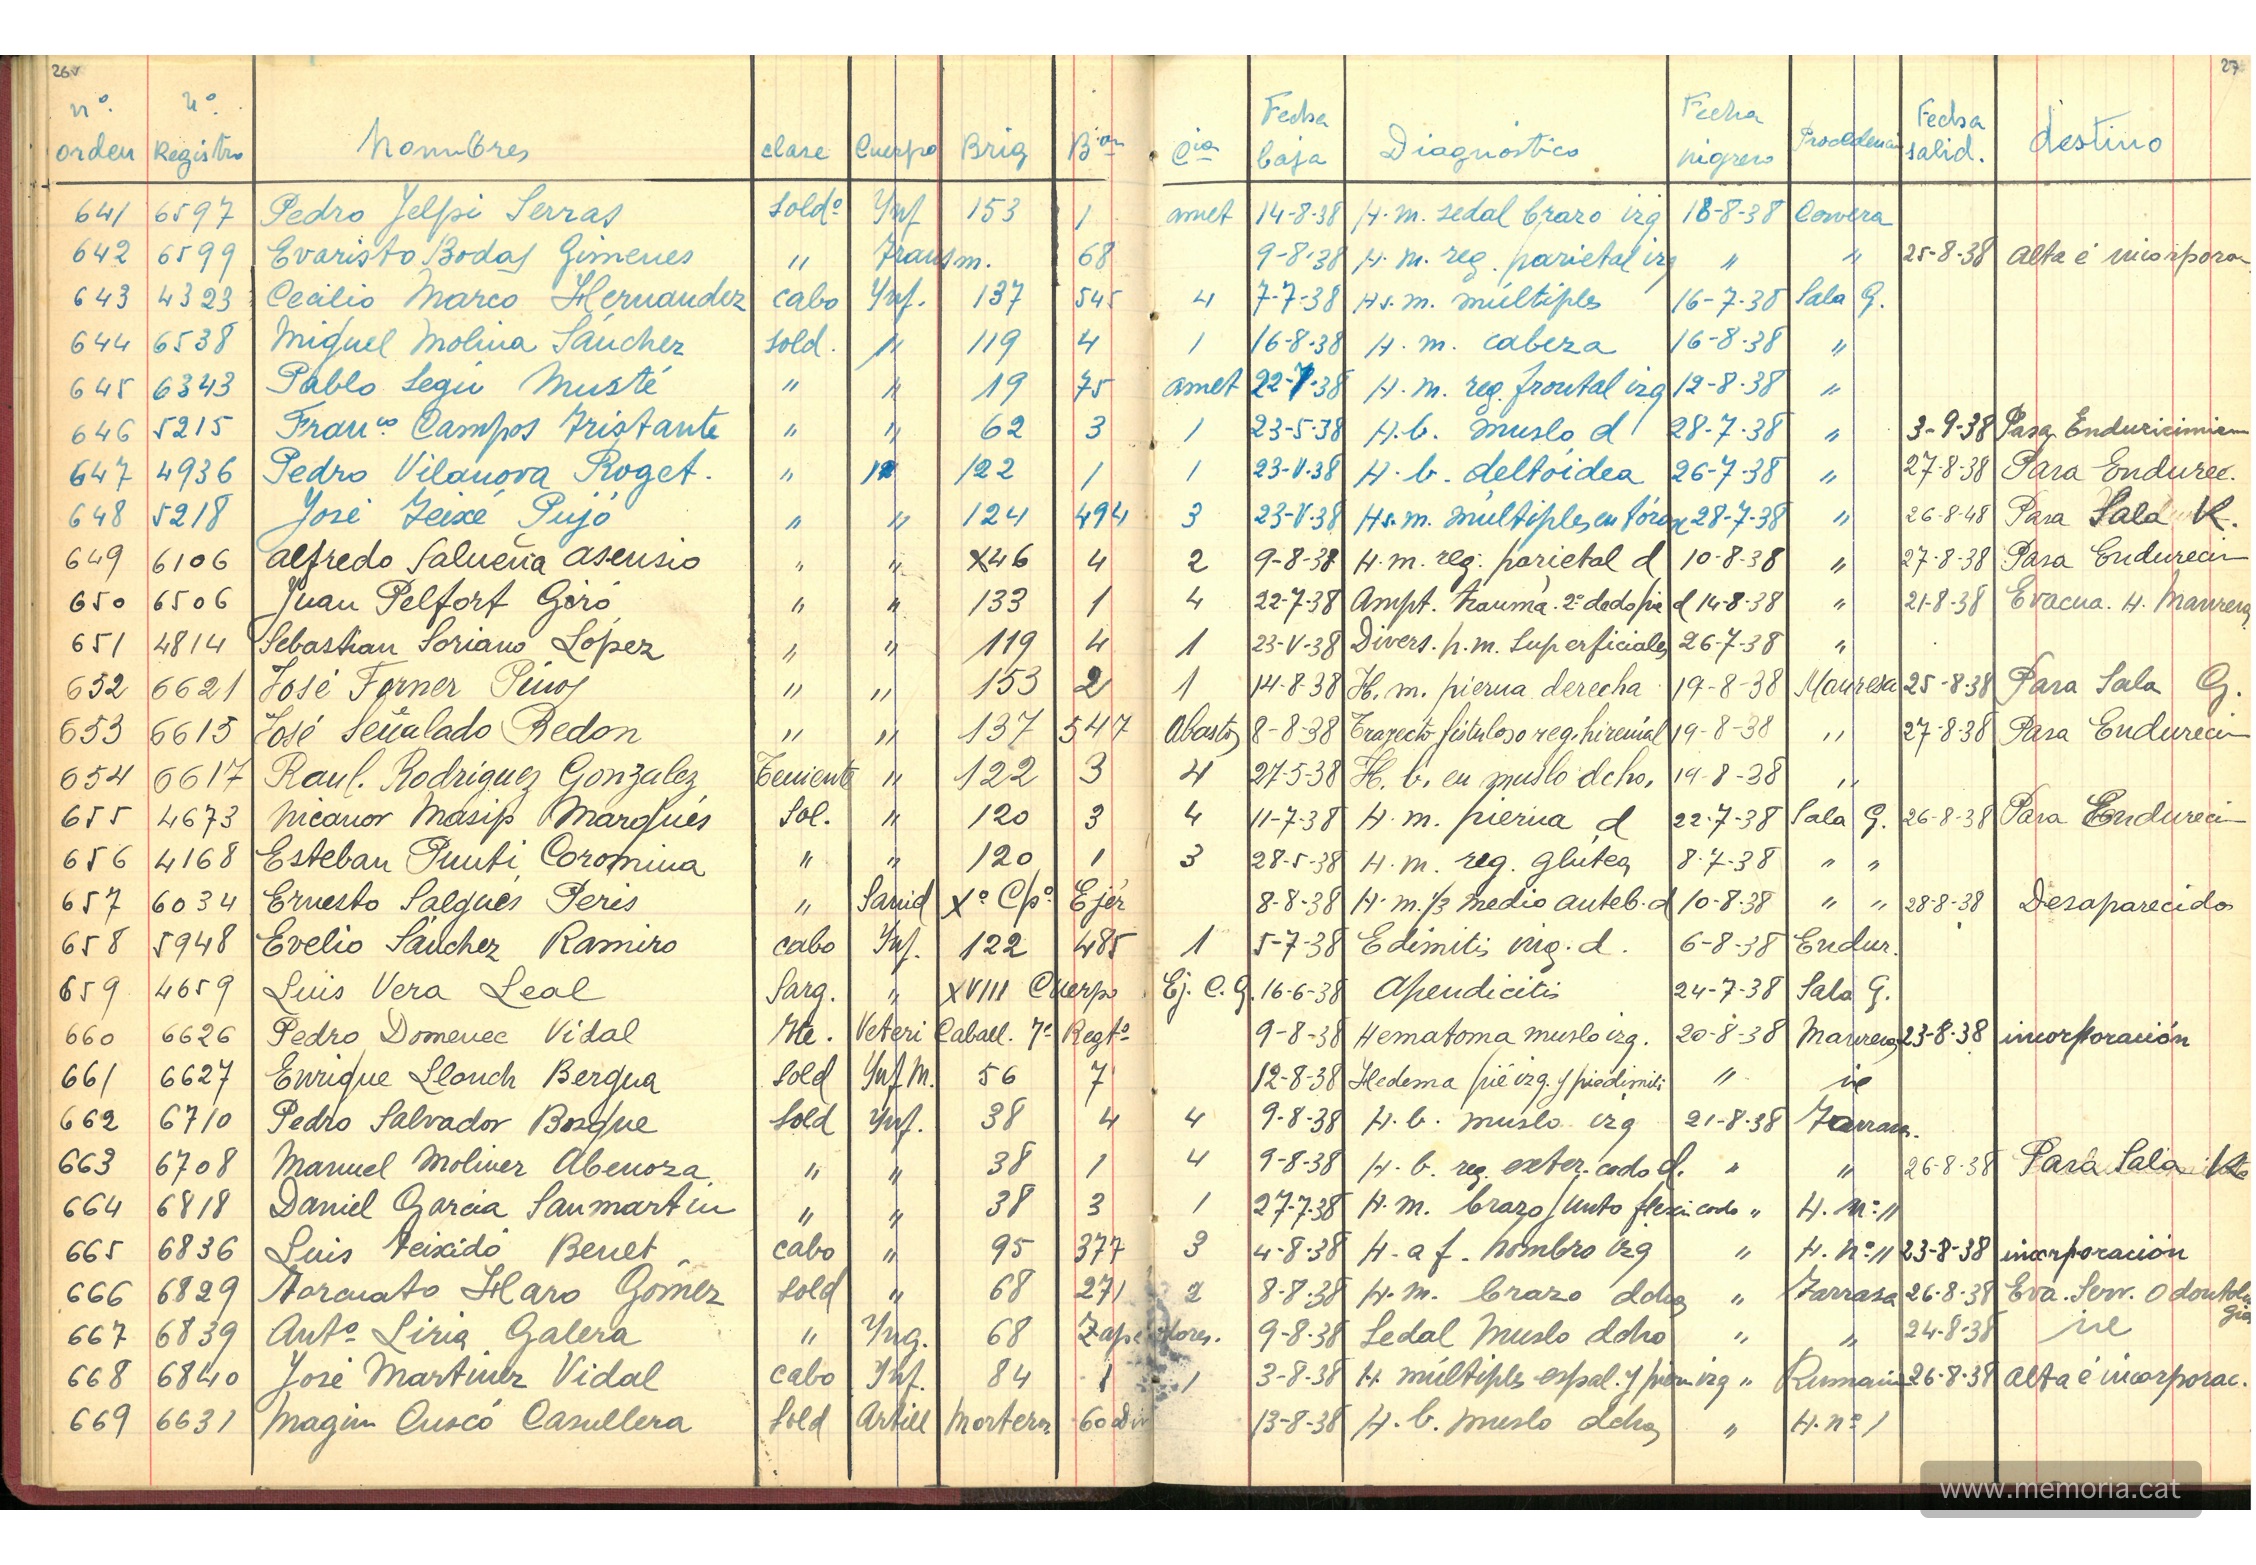 26v 27
nº orden nº Registro Nombres clase Cuerpo Brig Bon Cia Fecha baja Diagnóstico Fecha nigreso Procedencia Fecha salid. destino
641 6597 Pedro Jelpi Serras Soldº Ynf 153 1 amet 14-8-38 H. m. sedal brazo izq 18-8-38 Cervera
642 6599 Evaristo Bodas Gimenes " Transm. 68 9-8-38 H. m. reg. parietal izq " " 25-8-38 Alta é incorpora
643 4323 Cecilio Marco Hernandez cabo Ynf. 137 545 4 7-7-38 Hs. m. múltiples 16-7-38 Sala G.
644 6538 Miguel Molina Sánchez sold. " 119 4 1 16-8-38 H. m. cabeza 16-8-38 "
645 6343 Pablo Segú Musté " " 19 75 amet 22-7-38 H. m. reg. frontal izq 12-8-38 "
646 5215 Franco Campos Tristante " " 62 3 1 23-5-38 H. b. muslo d 28-7-38 " 3-9-38 Para Endurecimien
647 4936 Pedro Vilanova Roget. " 122 1 1 23-V-38 H. b. deltóidea 26-7-38 " 27-8-38 Para Endurec.
648 5218 José Teixé Pujó " " 124 494 3 23-V-38 Hs. m. múltiples en tórax 28-7-38 " 26-8-48 Para Sala K.
649 6106 Alfredo Salueña Asensio " " X46 4 2 9-8-38 H. m. reg. parietal d 10-8-38 " 27-8-38 Para Endureci
650 6506 Juan Pelfort Giró " " 133 1 4 22-7-38 Ampt. trauma. 2º dedo pie d 14-8-38 " 21-8-38 Evacua. H. Manresa
651 4814 Sebastian Soriano López " " 119 4 1 23-V-38 Divers. h. m. Superficiales 26-7-38 "
652 6621 José Forner Pinos " " 153 2 1 14-8-38 H. m. pierna derecha 19-8-38 Manresa 25-8-38 Para Sala G.
653 6615 José Señalado Redon " " 137 547 Abastos 8-8-38 Trayecto fistuloso reg. 19-8-38 " 27-8-38 Para Endureci
654 6617 Raul. Rodriguez Gonzalez Teniente " 122 3 4 27-5-38 H. b. en muslo dcho. 19-8-38 "
655 4673 Nicanor Masip Marqués Sol. " 120 3 4 11-7-38 H. m. pierna d 22-7-38 Sala G. 26-8-38 Para Endureci
656 4168 Esteban Puntí Coromina " " 120 1 3 28-5-38 H. m. reg. glútea 8-7-38 " "
657 6034 Ernesto Salgués Peris " Sanid Xº C/pº Ejér 8-8-38 H. m. 1/3 medio anteb. d 10-8-38 " " 28-8-38 Desaparecido
658 5948 Evelio Sánchez Ramiro cabo Ynf. 122 485 1 5-7-38 Edimitis ing. d. 6-8-38 Endur.
659 4659 Luis Vera Leal Sarg. " XVIII Cuerpo Ej. C. G. 16-6-38 Apendicitis 24-7-38 Sala G.
660 6626 Pedro Domenec Vidal Tte. Veteri Caball. 7º Regtº 9-8-38 Hematoma muslo izq. 20-8-38 Manresa 23-8-38 incorporación
661 6627 Enrique Llonch Bergua Sold Ynf M. 56 7 12-8-38 Hedema pié izq. y piodimitis " id
662 6710 Pedro Salvador Bosque Sold Ynf. 38 4 4 9-8-38 H. b. muslo izq 21-8-38 Tarrasa.
663 6708 Manuel Moliner Abenoza " " 38 1 4 9-8-38 H. b. reg. exter. codo d. " " 26-8-38 Para Sala K
664 6818 Daniel Garcia Sanmartin " " 38 3 1 27-7-38 H. m. brazo junto flexin codo " H. nº 11
665 6836 Luis Teixidó Benet cabo " 95 377 3 4-8-38 H. a f. hombro izq " H. nº 11 23-8-38 incorporación
666 6829 Torcuato Haro Gómez Sold " 68 271 2 8-8-38 H. m. brazo dcho " Tarrasa 26-8-38 Eva. Serv. Odontologia
667 6839 Antº Liria Galera " Yng. 68 Zapadores. 9-8-38 Sedal Muslo dcho " " 24-8-38 id
668 6840 José Martinez Vidal cabo Ynf. 84 1 1 3-8-38 H. múltiples espal. y piern izq " 26-8-38 Alta é incorporac.
669 6631 Magin Cuscó Casullera Sold Artill Morteros 60 Div 13-8-38 H. b. muslo dcho " H. nº 1
www.memoria.cat